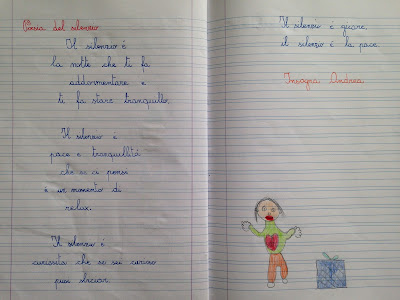 Poesia del silenzio
Il silenzio è
la notte che ti fa
addormentare e
ti fa stare tranquillo.
Il silenzio è
pace e tranquillità
che se ci pensi
è un momento di
relax.
Il silenzio è
curiosità che se sei curioso
puoi
Il silenzio è
il silenzio è la pace.
Insogna Andrea